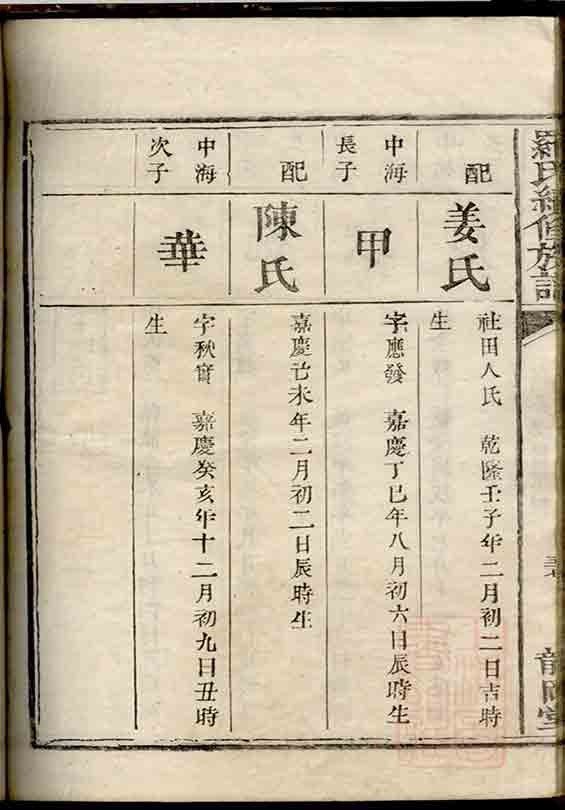 羅氏續修族譜
配
姜氏
社田人氏 乾隆壬子年二月初二日吉時
生
中海
長子
甲
字應發 嘉慶丁巳年八月初六日辰時生
配
陳氏
嘉慶己未年二月初二日辰時生
中海
次子
華
字秋實 嘉慶癸亥年十二月初九日丑時
生